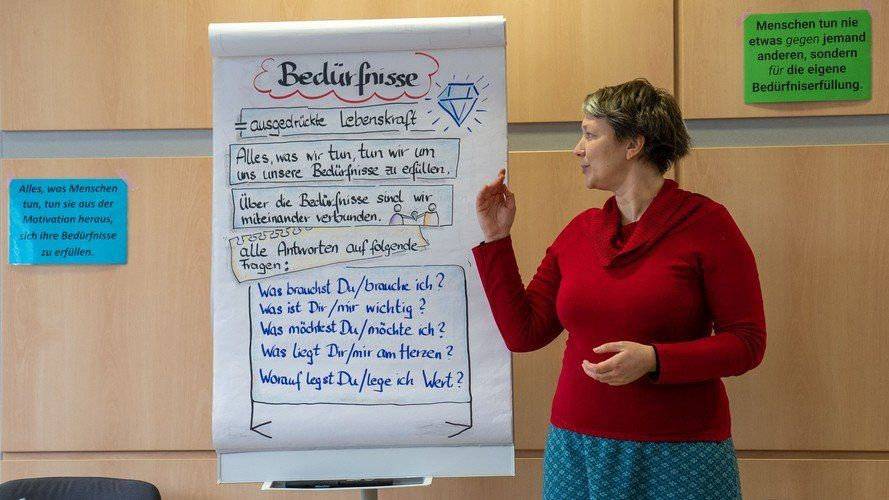 Bedürfnisse
= ausgedrückte Lebenskraft
Alles, was wir tun, tun wir um
uns unsere Bedürfnisse zu erfüllen.
Über die Bedürfnisse sind wir
miteinander verbunden.
alle Antworten auf folgende
Fragen:
Was brauchst Du/brauche ich?
Was ist Dir/mir wichtig?
Was möchtest Du/möchte ich?
Was liegt Dir/mir am Herzen?
Worauf legst Du/lege ich Wert?
Alles, was Menschen
tun, tun sie aus der
Motivation heraus,
sich ihre Bedürfnisse
zu erfüllen.
Menschen tun nie
etwas gegen jemand
anderen, sondern
für die eigene
Bedürfniserfüllung.